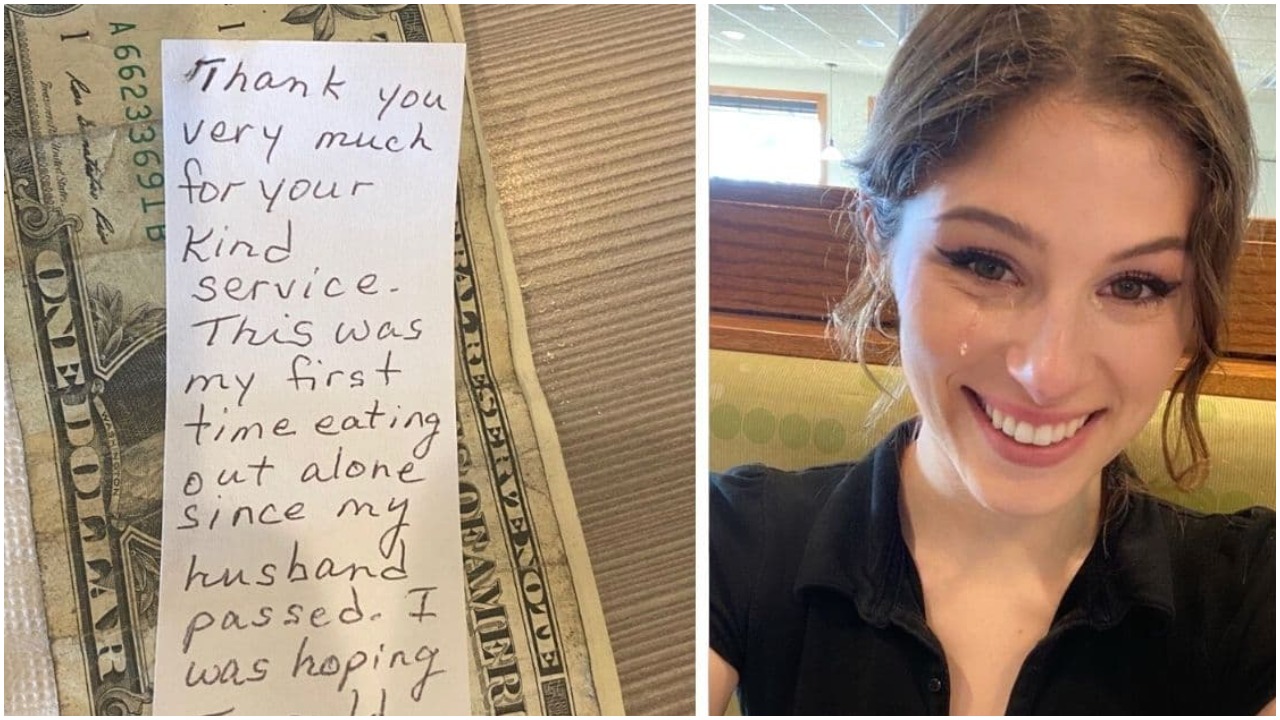 1
1
A 66233691 B
ONE DOLLAR
WASHINGTON
Thank you
very much
for your
kind
service.
This was
my first
time eating
out alone
since my
husband
passed. I
was hoping
ERAL RESERVE NOTE
ES OF AMERI